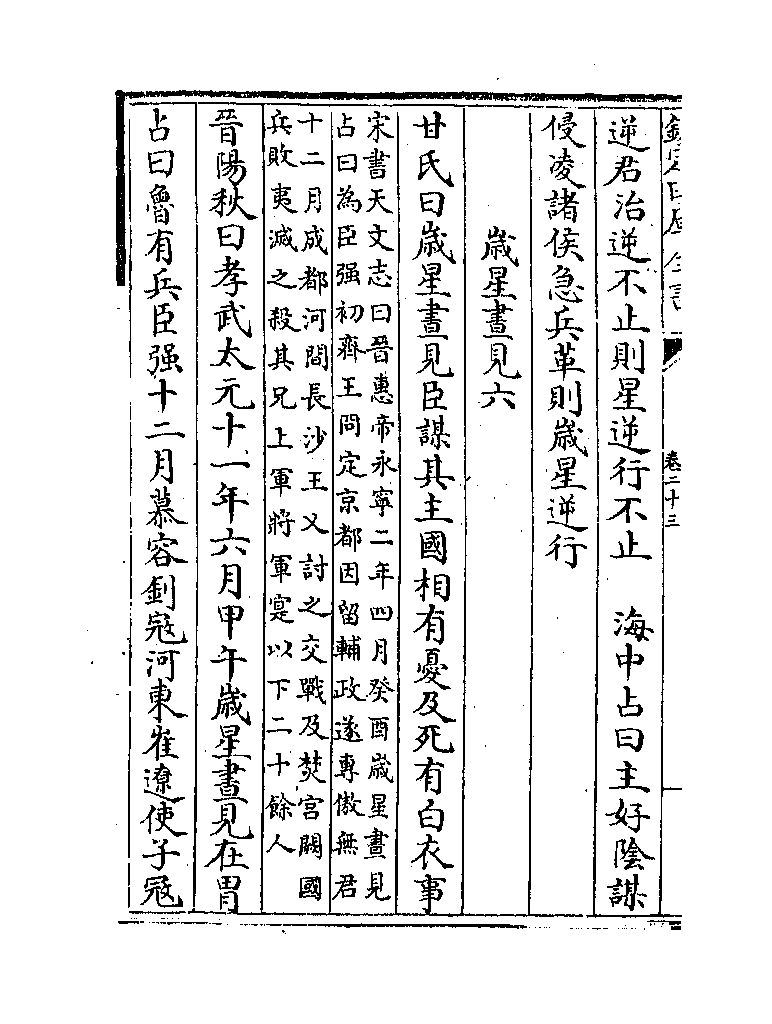 欽定四庫全書
卷二十三
逆君治逆不止則星逆行不止　海中占曰主好陰謀
侵凌諸侯急兵革則歳星逆行
歳星晝見六
甘氏曰歳星晝見臣謀其主國相有憂及死有白衣事
宋書天文志曰晉惠帝永寧二年四月癸酉歳星晝見
占曰為臣强初齊王冏定京都因留輔政遂專傲無君
十二月成都河間長沙王乂討之交戰及焚宮闕冏
兵敗夷滅之殺其兄上軍將軍寔以下二十餘人
晉陽秋曰孝武太元十一年六月甲午歳星晝見在胃
占曰魯有兵臣强十二月慕容釗冦河東崔遼使子冦